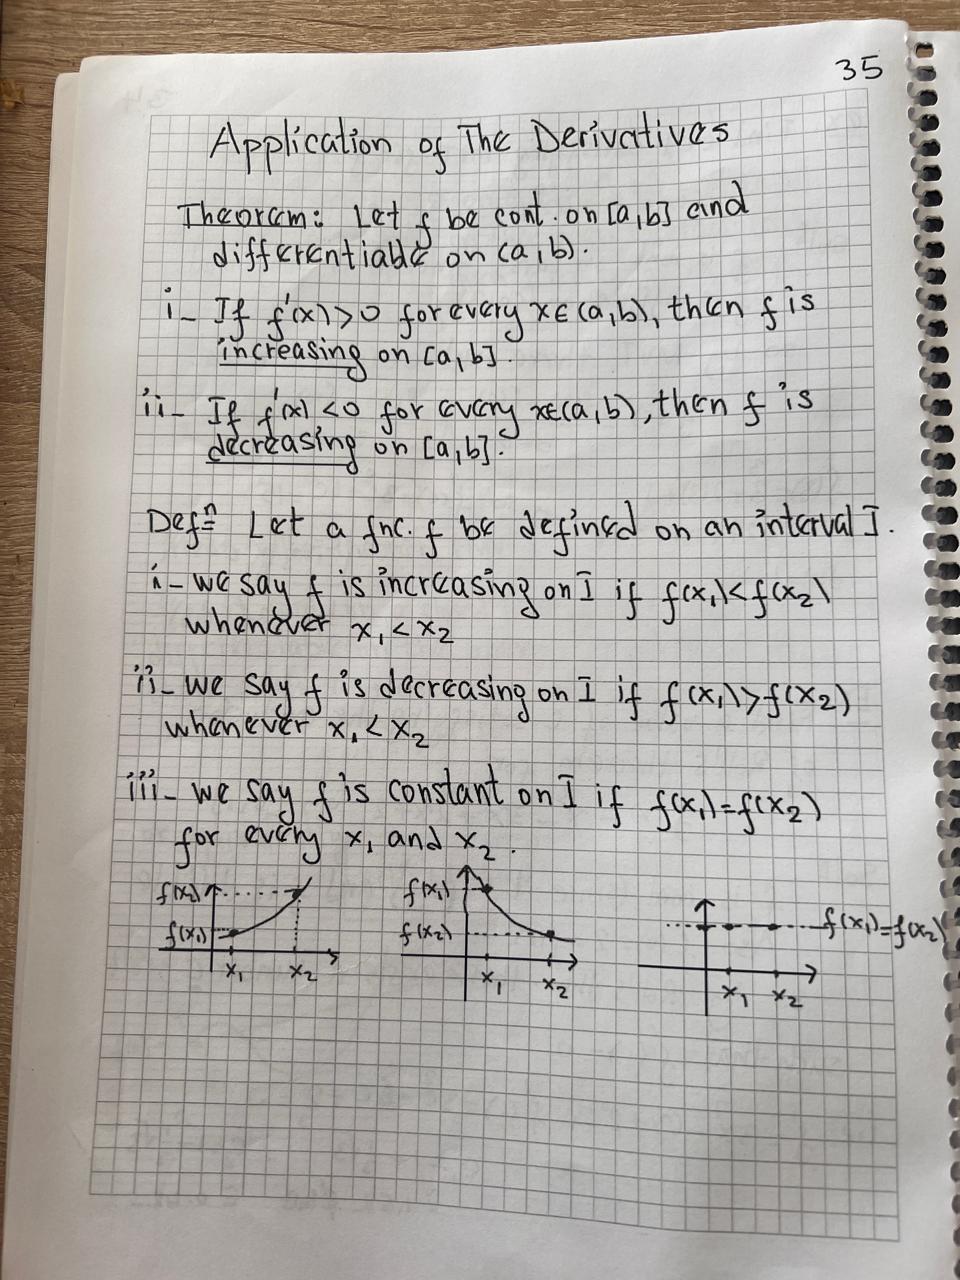 35
Application of The Derivatives
Theorem: Let f be cont. on [a,b] and
differentiable on (a,b).
i- If f'(x)>0 for every x∈(a,b), then f is
increasing on [a,b].
ii- If f'(x)<0 for every x∈(a,b), then f is
decreasing on [a,b].
Defⁿ= Let a fnc. f be defined on an interval I.
i- we say f is increasing on I if f(x₁)<f(x₂)
whenever x₁<x₂
ii- we say f is decreasing on I if f(x₁)>f(x₂)
whenever x₁<x₂
iii- we say f is constant on I if f(x₁)=f(x₂)
for every x₁ and x₂.
f(x₂) f(x₁)
f(x₁) f(x₂) f(x₁)=f(x₂)
x₁ x₂ x₁ x₂ x₁ x₂